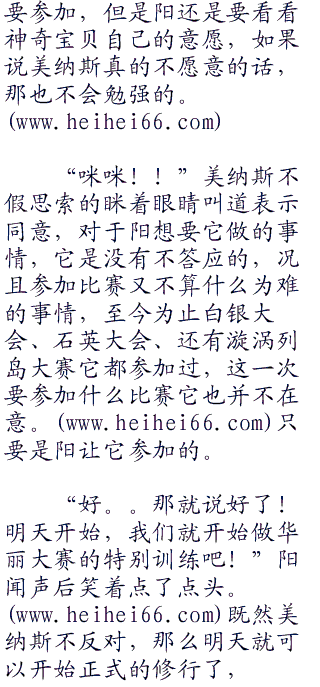 要参加，但是阳还是要看看
神奇宝贝自己的意愿，如果
说美纳斯真的不愿意的话，
那也不会勉强的。
(www.heihei66.com)
“咪咪！！”美纳斯不
假思索的眯着眼睛叫道表示
同意，对于阳想要它做的事
情，它是没有不答应的，况
且参加比赛又不算什么为难
的事情，至今为止白银大
会、石英大会、还有漩涡列
岛大赛它都参加过，这一次
要参加什么比赛它也并不在
意。(www.heihei66.com)只
要是阳让它参加的。
“好。。那就说好了！
明天开始，我们就开始做华
丽大赛的特别训练吧！”阳
闻声后笑着点了点头。
(www.heihei66.com)既然美
纳斯不反对，那么明天就可
以开始正式的修行了，